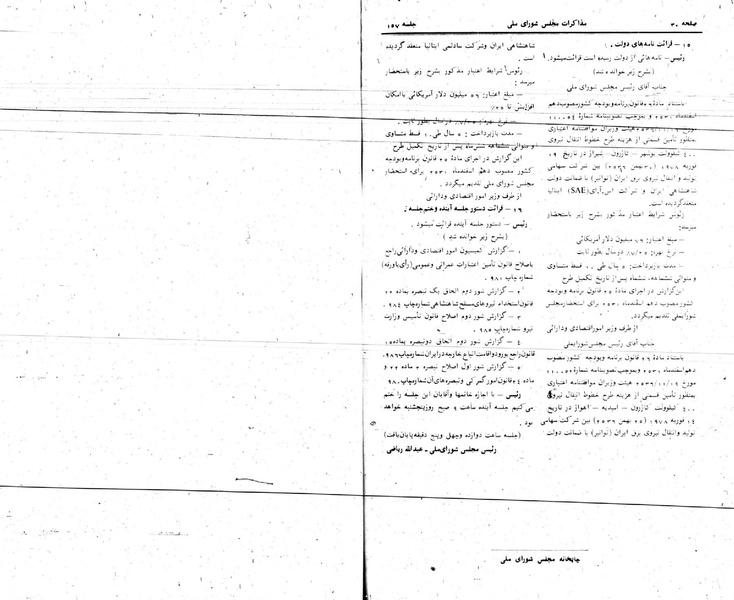 صفحه ۳۰ مذاکرات مجلس شورای ملی جلسه ۱۵۷
۱۵ - قرائت نامه‌های دولت .
رئیس - نامه‌هائی از دولت رسیده است قرائت میشود.
(بشرح زیر خوانده شد)
جناب آقای رئیس مجلس شورای ملی
باستناد ماده قانون برنامه و بودجه کشور مصوب دهم
اسفندماه و بموجب تصویبنامه شماره
مورخ هیئت وزیران موافقتنامه اعتباری
بمنظور تأمین قسمتی از هزینه طرح خطوط انتقال نیروی
۴۰۰ کیلوولت بوشهر - کازرون - شیراز در تاریخ
فوریه ۱۹۷۸ بین شرکت سهامی
تولید و انتقال نیروی برق ایران (توانیر) با ضمانت دولت
شاهنشاهی ایران و شرکت اس.آ.ای (SAE) ایتالیا
منعقد گردیده است.
رئوس شرایط اعتبار مذکور بشرح زیر باستحضار
میرسد:
- مبلغ اعتبار: میلیون دلار آمریکائی
- نرخ بهره: درسال بطور ثابت
- مدت بازپرداخت: سال طی قسط متساوی
و متوالی ششماهه، ششماه پس از تاریخ تکمیل طرح
این گزارش در اجرای ماده قانون برنامه و بودجه
کشور مصوب دهم اسفندماه برای استحضار مجلس
شورایملی تقدیم میگردد.
از طرف وزیر امور اقتصادی و دارائی
جناب آقای رئیس مجلس شورایملی
باستناد ماده قانون برنامه و بودجه کشور مصوب
دهم اسفندماه و بموجب تصویبنامه شماره
مورخ هیئت وزیران موافقتنامه اعتباری
بمنظور تأمین قسمتی از هزینه طرح خطوط انتقال نیروی
۴۰۰ کیلوولت کازرون - امیدیه - اهواز در تاریخ
فوریه ۱۹۷۸ بین شرکت سهامی
تولید و انتقال نیروی برق ایران (توانیر) با ضمانت دولت
شاهنشاهی ایران و شرکت سادلمی ایتالیا منعقد گردیده
است .
رئوس شرایط اعتبار مذکور بشرح زیر باستحضار
میرسد :
- مبلغ اعتبار: میلیون دلار آمریکائی با امکان
افزایش تا
- نرخ بهره: درسال بطور ثابت .
- مدت بازپرداخت : سال طی قسط متساوی
و متوالی ششماهه پس از تاریخ تکمیل طرح
این گزارش در اجرای ماده قانون برنامه و بودجه
کشور مصوب دهم اسفندماه برای استحضار
مجلس شورای ملی تقدیم میگردد .
از طرف وزیر امور اقتصادی و دارائی
۱۶ - قرائت دستور جلسه آینده و ختم جلسه .
رئیس - دستور جلسه آینده قرائت میشود .
(بشرح زیر خوانده شد )
۱ - گزارش کمیسیون امور اقتصادی و دارائی راجع
باصلاح قانون تأمین اعتبارات عمرانی و عمومی (رأی باورقه)
شماره چاپ
۲ - گزارش شور دوم الحاق یک تبصره بماده
قانون استخدام نیروهای مسلح شاهنشاهی شماره چاپ ۹۸۴
۳ - گزارش شور دوم اصلاح قانون تأسیس وزارت
نیرو شماره چاپ ۹۸۵ .
۴ - گزارش شور دوم الحاق دو تبصره بماده
قانون راجع بورود و اقامت اتباع خارجه در ایران شماره چاپ ۹۸۶
۵ - گزارش شور اول اصلاح تبصره ماده و
ماده قانون امور گمرکی و تبصره‌های آن شماره چاپ
رئیس - با اجازه خانمها و آقایان این جلسه را ختم
می‌کنیم جلسه آینده ساعت ۹ صبح روز پنجشنبه خواهد
بود .
(جلسه ساعت دوازده و چهل و پنج دقیقه پایان یافت)
رئیس مجلس شورای ملی - عبدالله ریاضی
چاپخانه مجلس شورای ملی